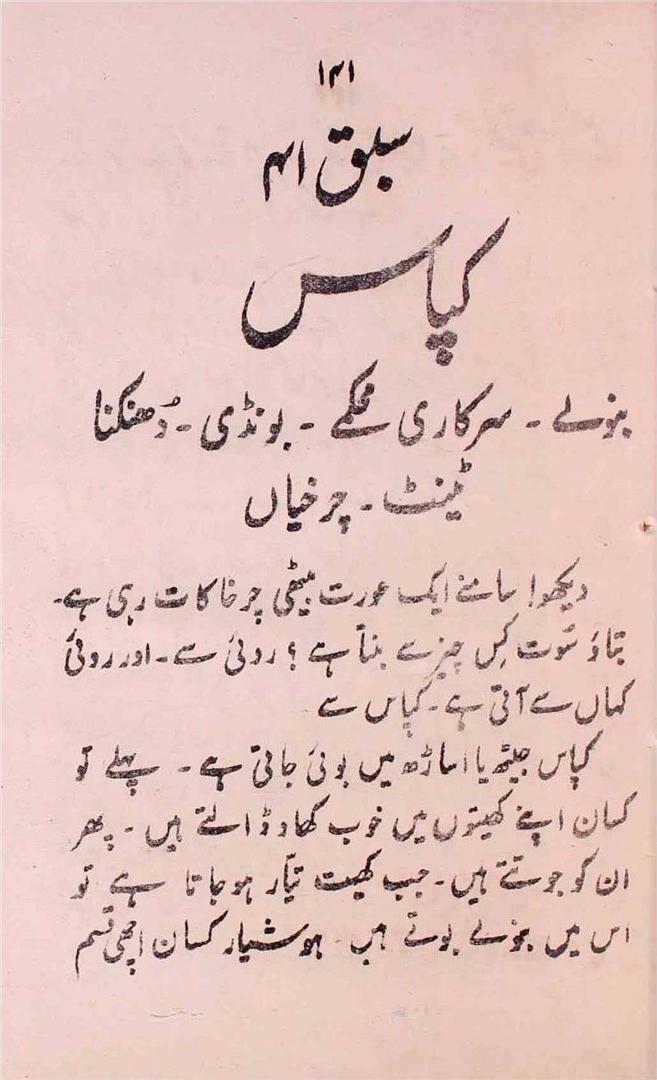 ۱۴۱
سبق ۴۱
کپاس
بنولے - سرکاری محکمے - بونڈی - دُھنکنا
ٹینٹ - چرخیاں
دیکھو! سامنے ایک عورت بیٹھی چرخا کات رہی ہے۔
بتاؤ سُوت کِس چیز سے بنتا ہے؟ روئی سے - اور روئی
کہاں سے آتی ہے - کپاس سے
کپاس جیٹھ یا اساڑھ میں بوئی جاتی ہے - پہلے تو
کسان اپنے کھیتوں میں خوب کھاد ڈالتے ہیں - پھر
ان کو جوتتے ہیں - جب کھیت تیّار ہو جاتا ہے تو
اس میں بنولے بوتے ہیں - ہوشیار کسان اچھی قسم